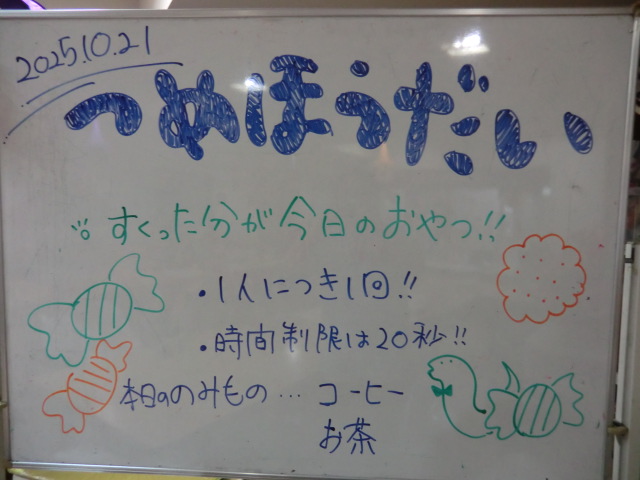 2025.10.21
つめほうだい
すくった分が今日のおやつ!!
・1人につき1回!!
・時間制限は20秒!!
本日ののみもの… コーヒー
お茶